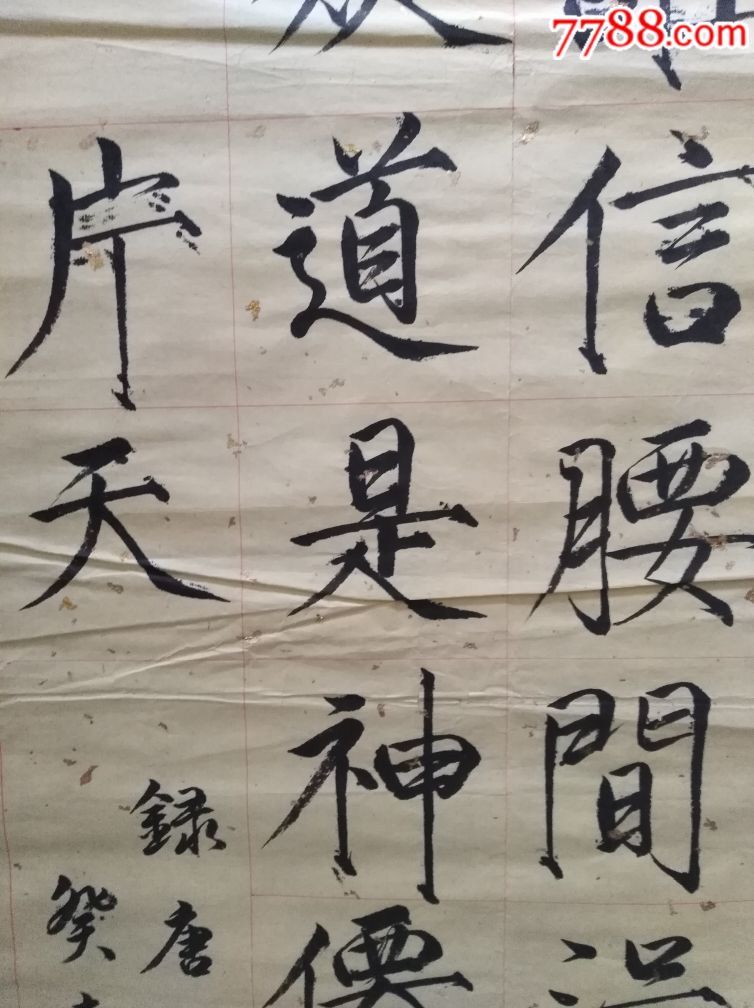 7788.com
信腰間
道是神
片天
錄唐
癸